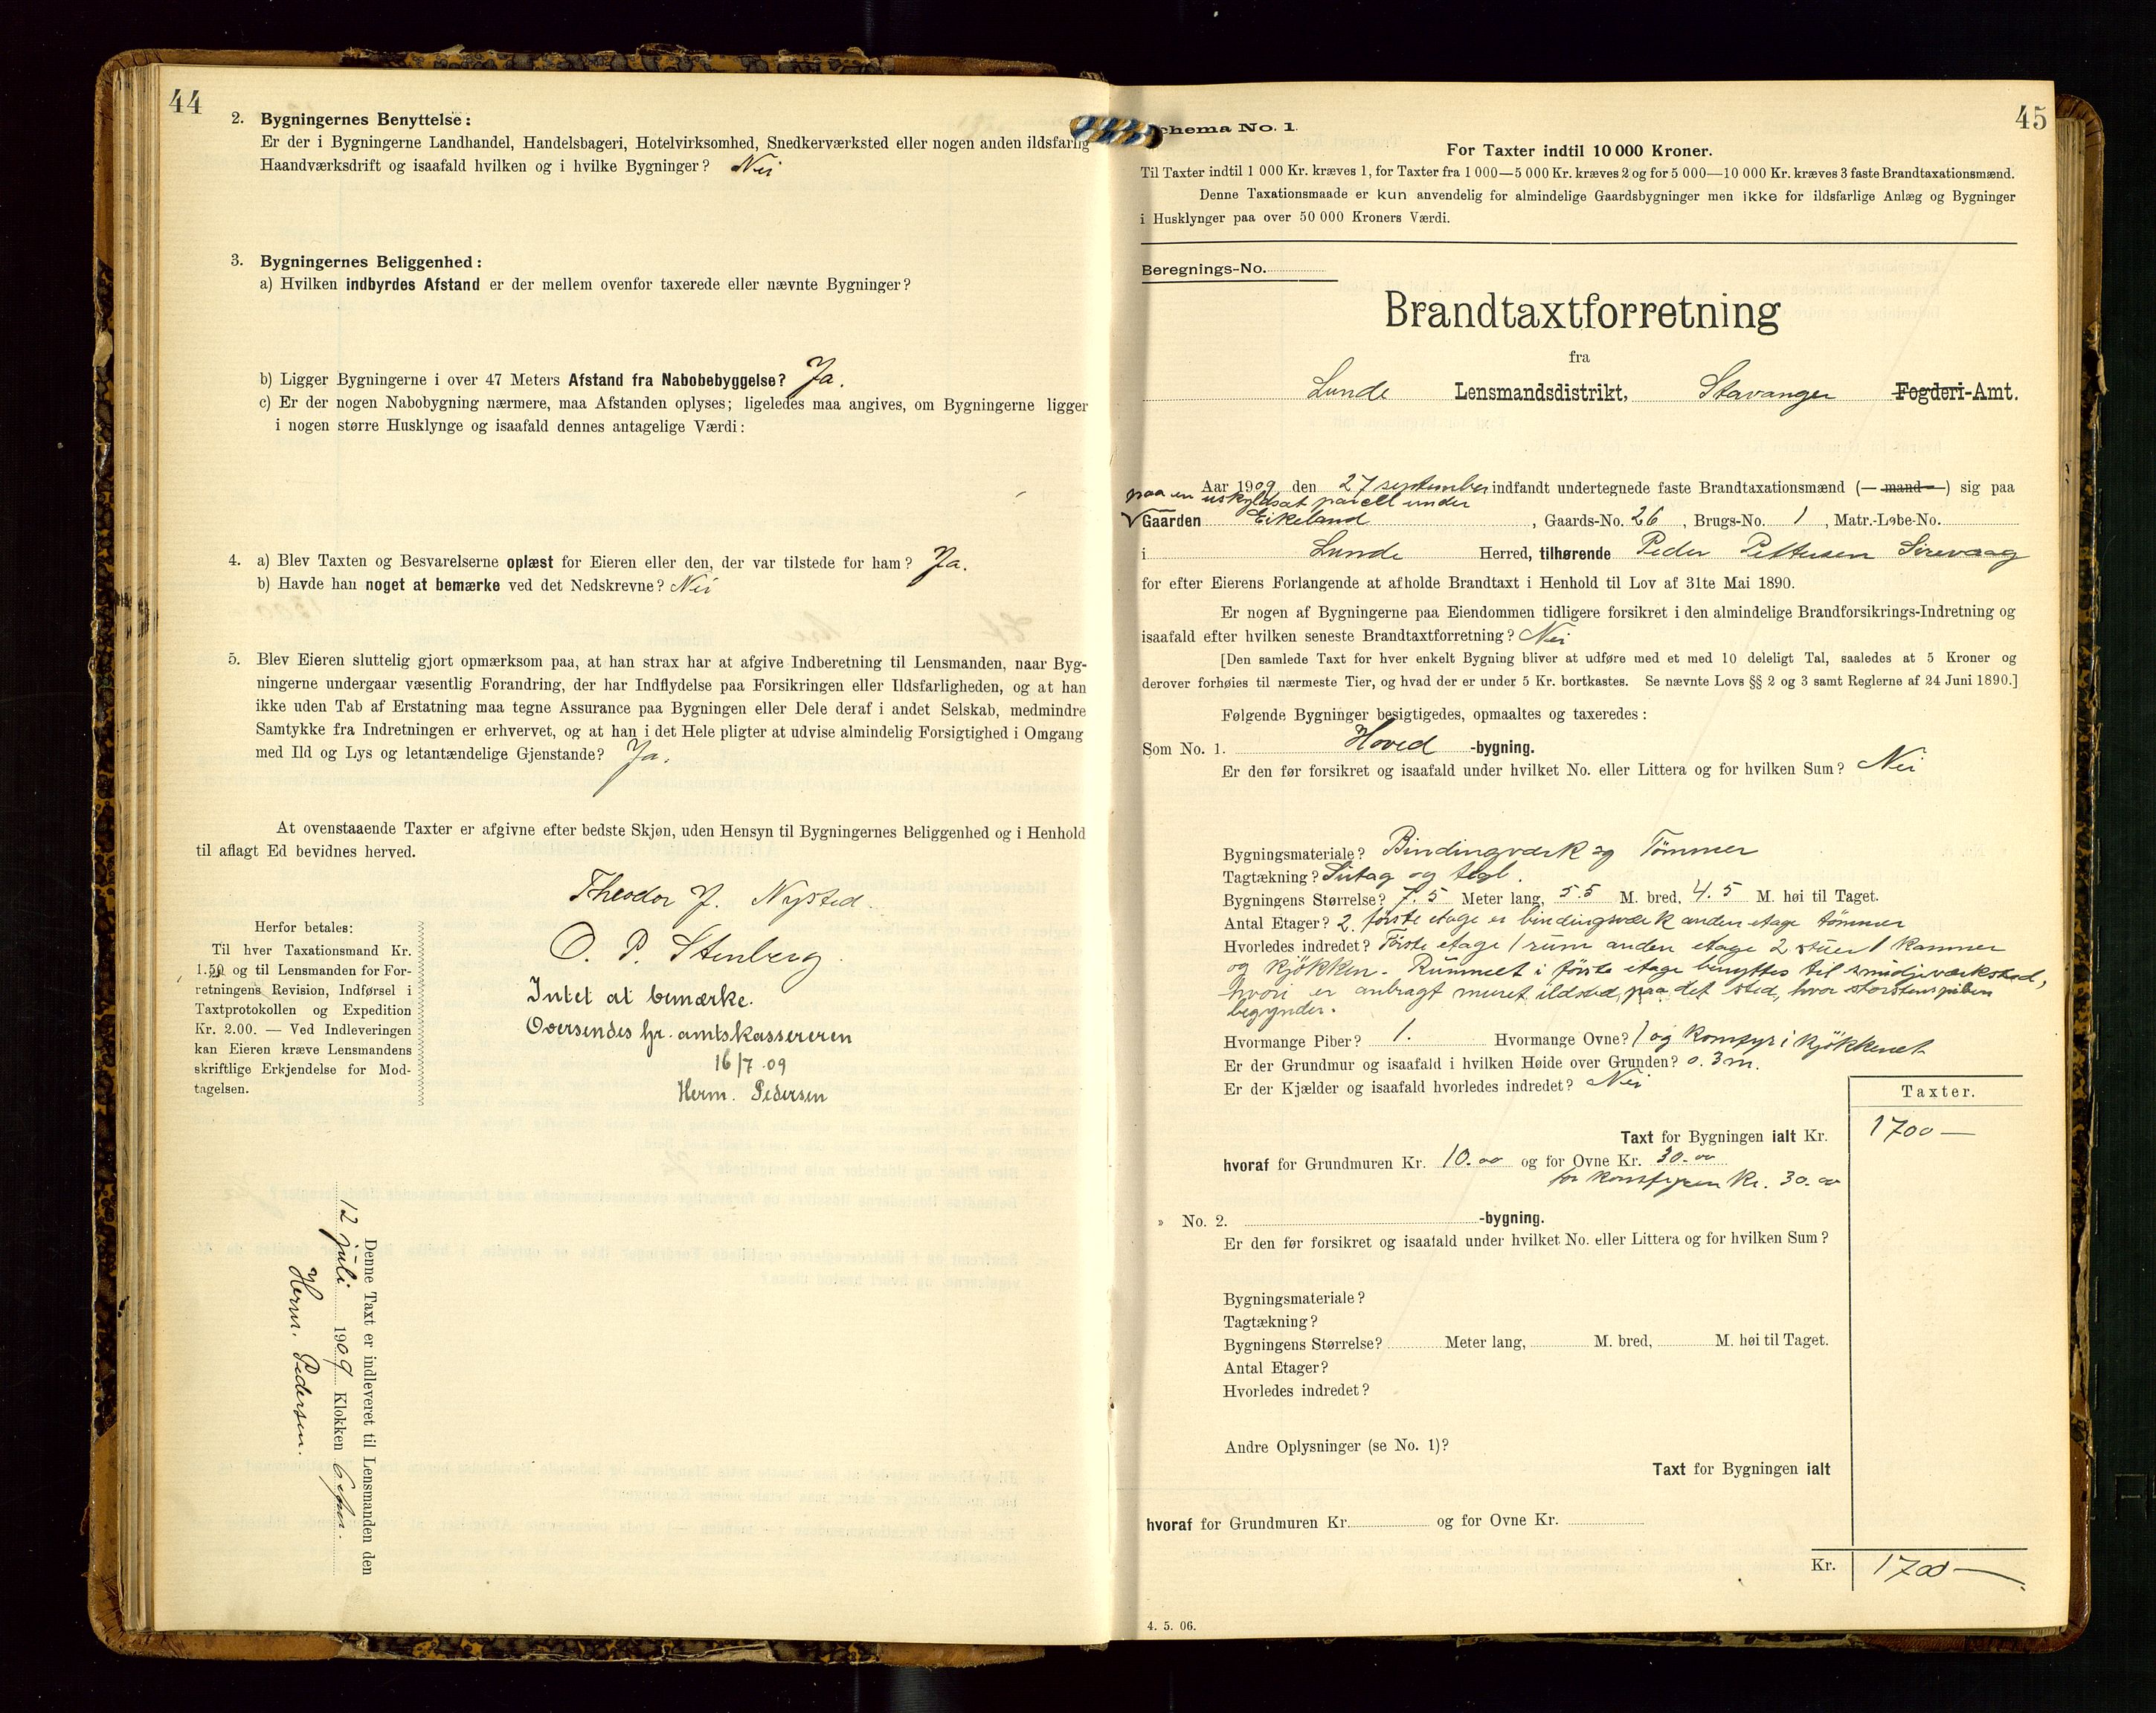 44
2. Bygningernes Benyttelse:
Er der i Bygningerne Landhandel, Handelsbageri, Hotelvirksomhed, Snedkerværksted eller nogen anden ildsfarlig
Haandværksdrift og isaafald hvilken og i hvilke Bygninger? Nei
3. Bygningernes Beliggenhed:
a) Hvilken indbyrdes Afstand er der mellem ovenfor taxerede eller nævnte Bygninger?
b) Ligger Bygningerne i over 47 Meters Afstand fra Nabobebyggelse? Ja.
c) Er der nogen Nabobygning nærmere, maa Afstanden oplyses; ligeledes maa angives, om Bygningerne ligger
i nogen større Husklynge og isaafald dennes antagelige Værdi:
4. a) Blev Taxten og Besvarelserne oplæst for Eieren eller den, der var tilstede for ham? Ja.
b) Havde han noget at bemærke ved det Nedskrevne? Nei
5. Blev Eieren sluttelig gjort opmærksom paa, at han strax har at afgive Indberetning til Lensmanden, naar Byg-
ningerne undergaar væsentlig Forandring, der har Indflydelse paa Forsikringen eller Ildsfarligheden, og at han
ikke uden Tab af Erstatning maa tegne Assurance paa Bygningen eller Dele deraf i andet Selskab, medmindre
Samtykke fra Indretningen er erhvervet, og at han i det Hele pligter at udvise almindelig Forsigtighed i Omgang
med Ild og Lys og letantændelige Gjenstande? Ja.
At ovenstaaende Taxter er afgivne efter bedste Skjøn, uden Hensyn til Bygningernes Beliggenhed og i Henhold
til aflagt Ed bevidnes herved.
Theodor J. Nysted.
O. P. Stenberg.
Intet at bemærke.
Oversendes hr. amtskassereren
16/7 09
Herm. Pedersen
Herfor betales:
Til hver Taxationsmand Kr.
1.50 og til Lensmanden for For-
retningens Revision, Indførsel i
Taxtprotokollen og Expedition
Kr. 2.00. — Ved Indleveringen
kan Eieren kræve Lensmandens
skriftlige Erkjendelse for Mod-
tagelsen.
Denne Taxt er indleveret til Lensmanden den
12 juli 1909 Klokken 6
Herm. Pedersen.
45
chema No. 1.
For Taxter indtil 10 000 Kroner.
Til Taxter indtil 1 000 Kr. kræves 1, for Taxter fra 1 000—5 000 Kr. kræves 2 og for 5 000—10 000 Kr. kræves 3 faste Brandtaxationsmænd.
Denne Taxationsmaade er kun anvendelig for almindelige Gaardsbygninger men ikke for ildsfarlige Anlæg og Bygninger
i Husklynger paa over 50 000 Kroners Værdi.
Beregnings-No.
Brandtaxtforretning
fra
Lunde Lensmandsdistrikt, Stavanger Fogderi-Amt.
Aar 1909 den 27 september indfandt undertegnede faste Brandtaxationsmænd (— mand —) sig paa
paa en uskyldsat parcell under
Gaarden Eikeland, Gaards-No. 26, Brugs-No. 1, Matr.-Løbe-No.
i Lunde Herred, tilhørende Peder Pettersen Sirevaag
for efter Eierens Forlangende at afholde Brandtaxt i Henhold til Lov af 31te Mai 1890.
Er nogen af Bygningerne paa Eiendommen tidligere forsikret i den almindelige Brandforsikrings-Indretning og
isaafald efter hvilken seneste Brandtaxtforretning? Nei
[Den samlede Taxt for hver enkelt Bygning bliver at udføre med et med 10 deleligt Tal, saaledes at 5 Kroner og
derover forhøies til nærmeste Tier, og hvad der er under 5 Kr. bortkastes. Se nævnte Lovs §§ 2 og 3 samt Reglerne af 24 Juni 1890.]
Følgende Bygninger besigtigedes, opmaaltes og taxeredes:
Som No. 1. Hoved -bygning.
Er den før forsikret og isaafald under hvilket No. eller Littera og for hvilken Sum? Nei
Bygningsmateriale? Bindingværk og Tömmer
Tagtækning? Sutag og tegl.
Bygningens Størrelse? 7.5 Meter lang, 5.5 M. bred, 4.5 M. høi til Taget.
Antal Etager? 2. förste etage er bindingsværk anden etage tömmer
Hvorledes indredet? Förste etage 1 rum anden etage 2 stuer 1 kammer
og kjökken. Rummet i förste etage benyttes til smidjeværksted,
hvori er anbragt muret ildsted, paa det sted, hvor storstenspiben
begynder.
Hvormange Piber? 1. Hvormange Ovne? 1 og komfyr i kjökkenet
Er der Grundmur og isaafald i hvilken Høide over Grunden? 0.3 m.
Er der Kjælder og isaafald hvorledes indredet? Nei
Taxter.
Taxt for Bygningen ialt Kr. 1700 —
hvoraf for Grundmuren Kr. 10.00 og for Ovne Kr. 30.00
for komfyren Kr. 30.00
» No. 2. -bygning.
Er den før forsikret og isaafald under hvilket No. eller Littera og for hvilken Sum?
Bygningsmateriale?
Tagtækning?
Bygningens Størrelse? Meter lang, M. bred, M. høi til Taget.
Antal Etager?
Hvorledes indredet?
Andre Oplysninger (se No. 1)?
Taxt for Bygningen ialt
hvoraf for Grundmuren Kr. og for Ovne Kr.
Kr. 1700 —
4. 5. 06.